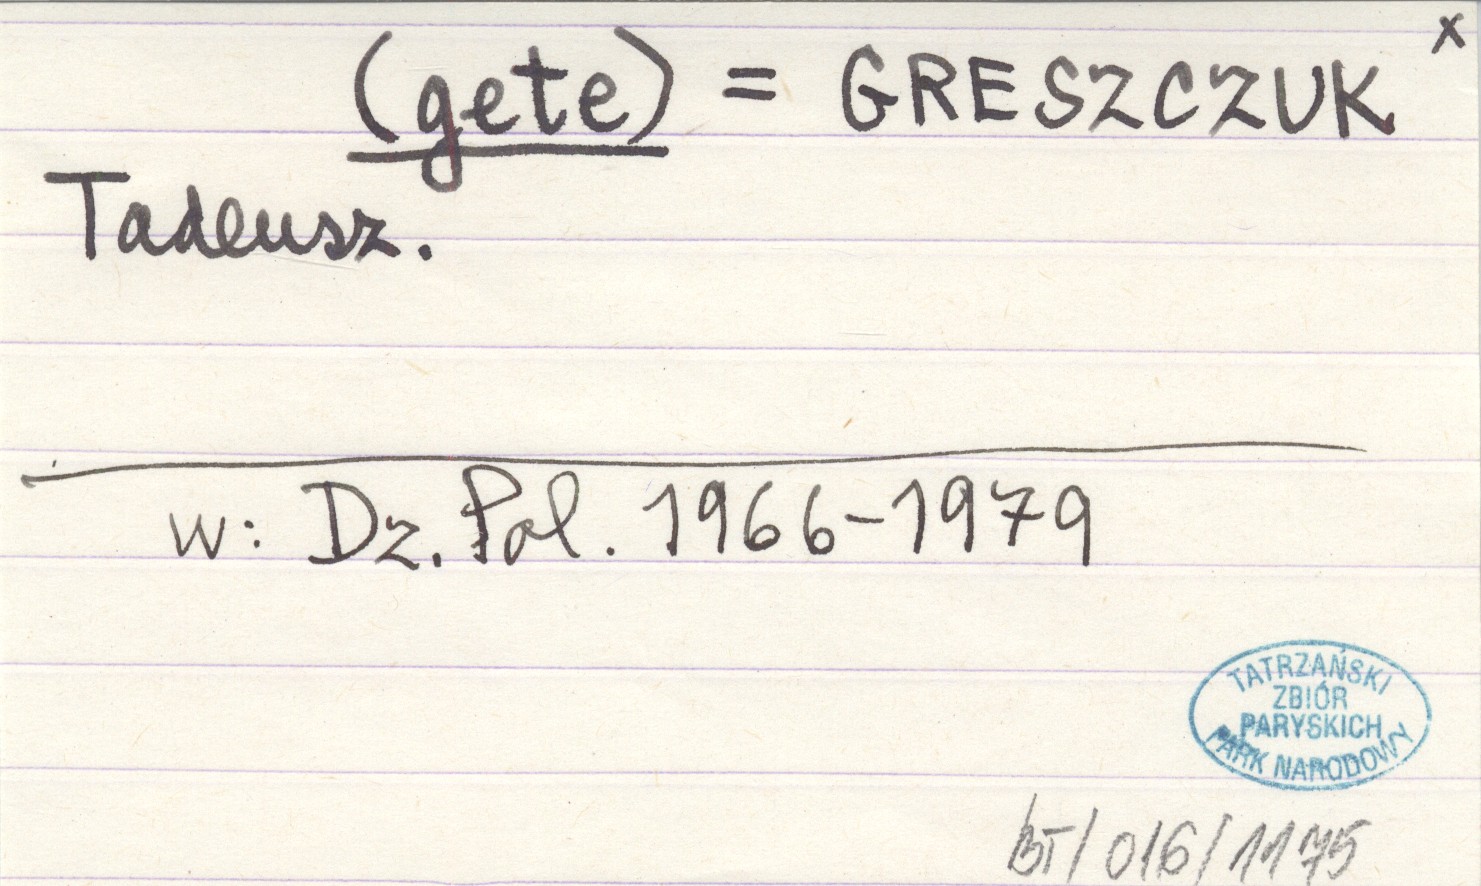 (gete) = GRESZCZUK x
Tadeusz.
w: Dz. Pol. 1966-1979
TATRZAŃSKI
ZBIÓR
PARYSKICH
PARK NARODOWY
BT/016/1175